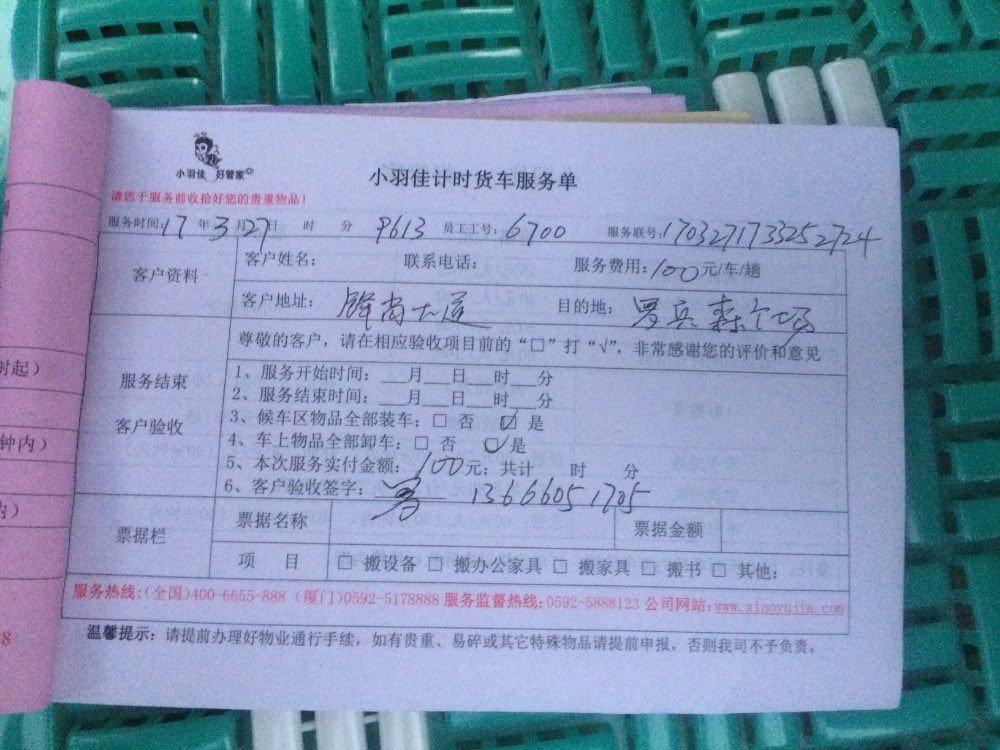 小羽佳 好管家
小羽佳计时货车服务单
请您于服务前收拾好您的贵重物品！
服务时间:17年3月27日 时 分 9613 员工工号:6700 服务联号:1703271733252724
客户资料
客户姓名: 联系电话: 服务费用:100元/车/趟
客户地址: 大道 目的地: 罗宾森广场
尊敬的客户，请在相应验收项目前的“□”打“√”，非常感谢您的评价和意见
服务结束
客户验收
1、服务开始时间:___月___日___时___分
2、服务结束时间:___月___日___时___分
3、候车区物品全部装车:□ 否 ☑ 是
4、车上物品全部卸车:□ 否 ☑ 是
5、本次服务实付金额:100元; 共计 时 分
6、客户验收签字: 13666051705
票据栏
票据名称 票据金额
项 目 □ 搬设备 □ 搬办公家具 □ 搬家具 □ 搬书 □ 其他:
服务热线:(全国)400-6655-888 (厦门)0592-5178888 服务监督热线:0592-5888123 公司网站:www.xiaoyujia.com
温馨提示：请提前办理好物业通行手续，如有贵重、易碎或其它特殊物品请提前申报，否则我司不予负责。
时起）
钟内）